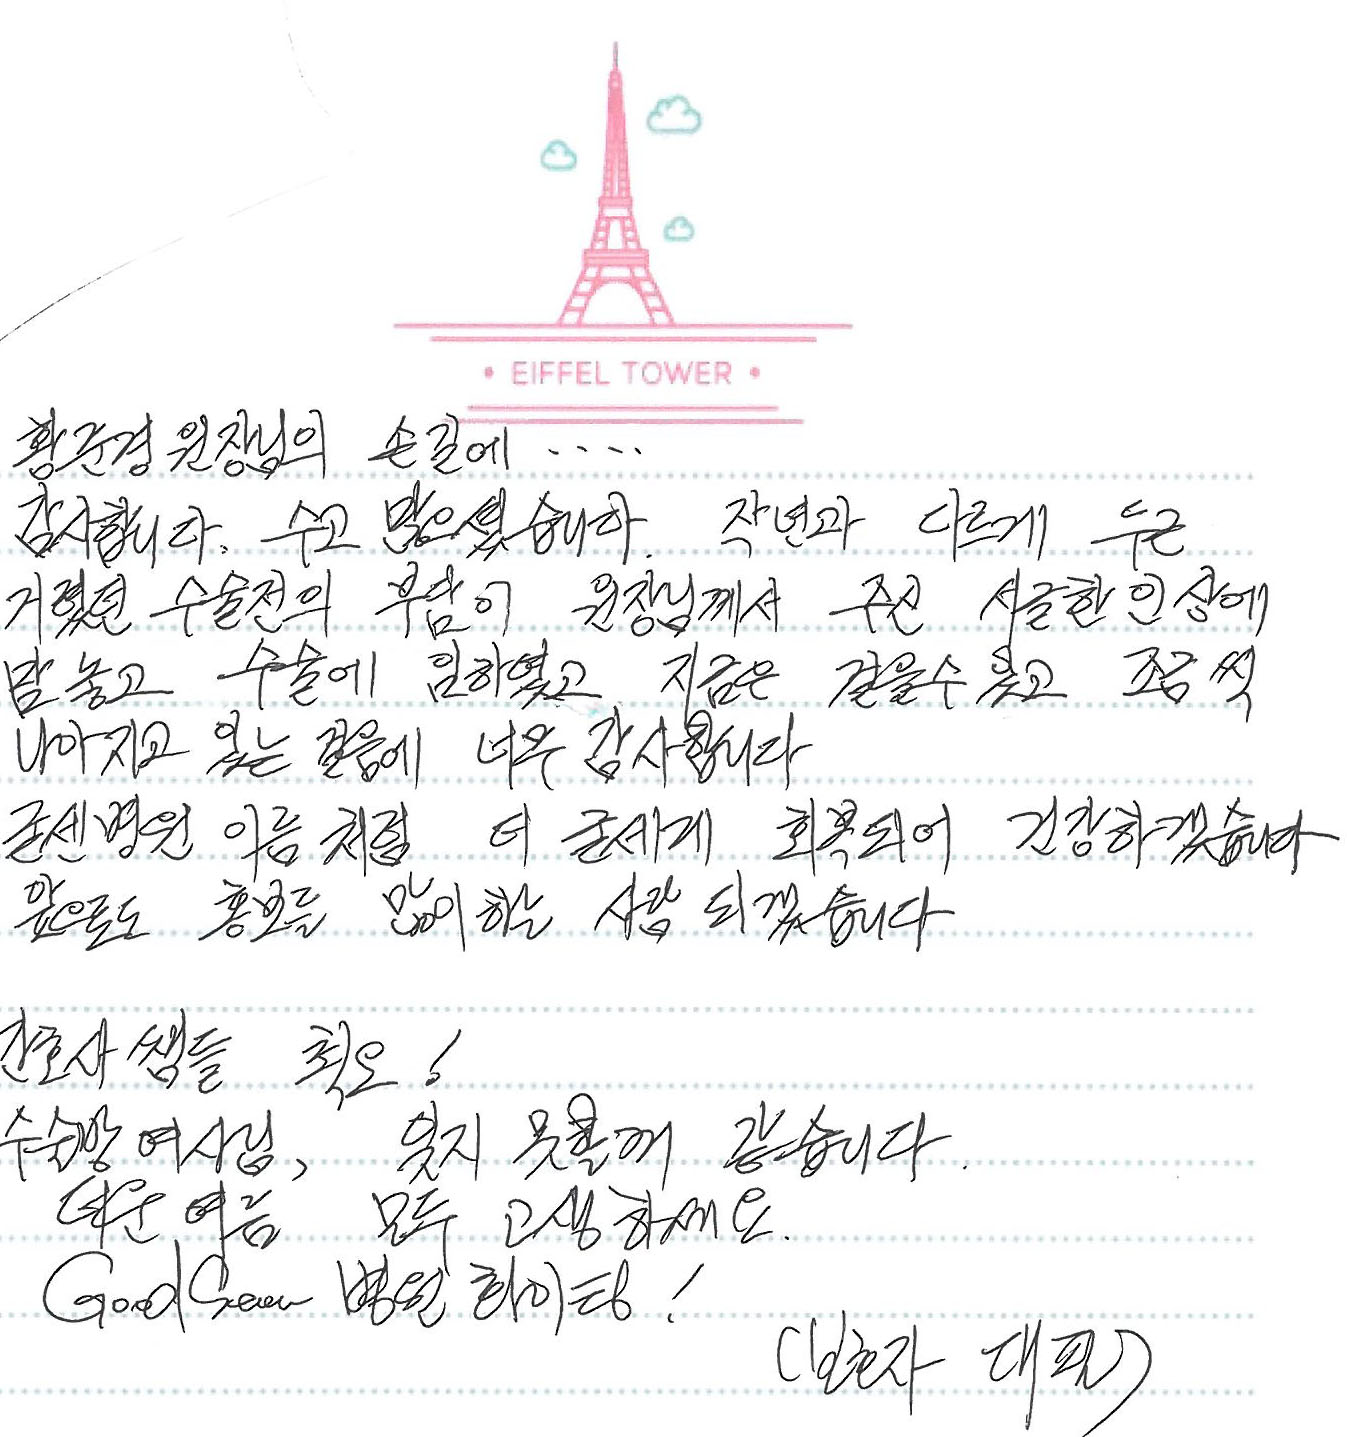 • EIFFEL TOWER •
황준경 원장님의 손길에 ····
감사합니다. 수고 많으셨습니다. 작년과 다르게 두근
거렸던 수술전의 부담이 원장님께서 주신 서글한 인상에
맘 놓고 수술에 임하였고 지금은 걸을수 있고 조금씩
나아지고 있는 걸음에 너무 감사합니다
굳센병원 이름처럼 더 굳세게 회복되어 건강하겠습니다
앞으로도 홍보를 많이 하는 사람 되겠습니다
간호사 쌤들 최고!
수술방 여사님, 잊지 못할꺼 같습니다.
더운 여름 모두 고생하세요.
GoodSen 병원 화이팅!
(보호자 대필)